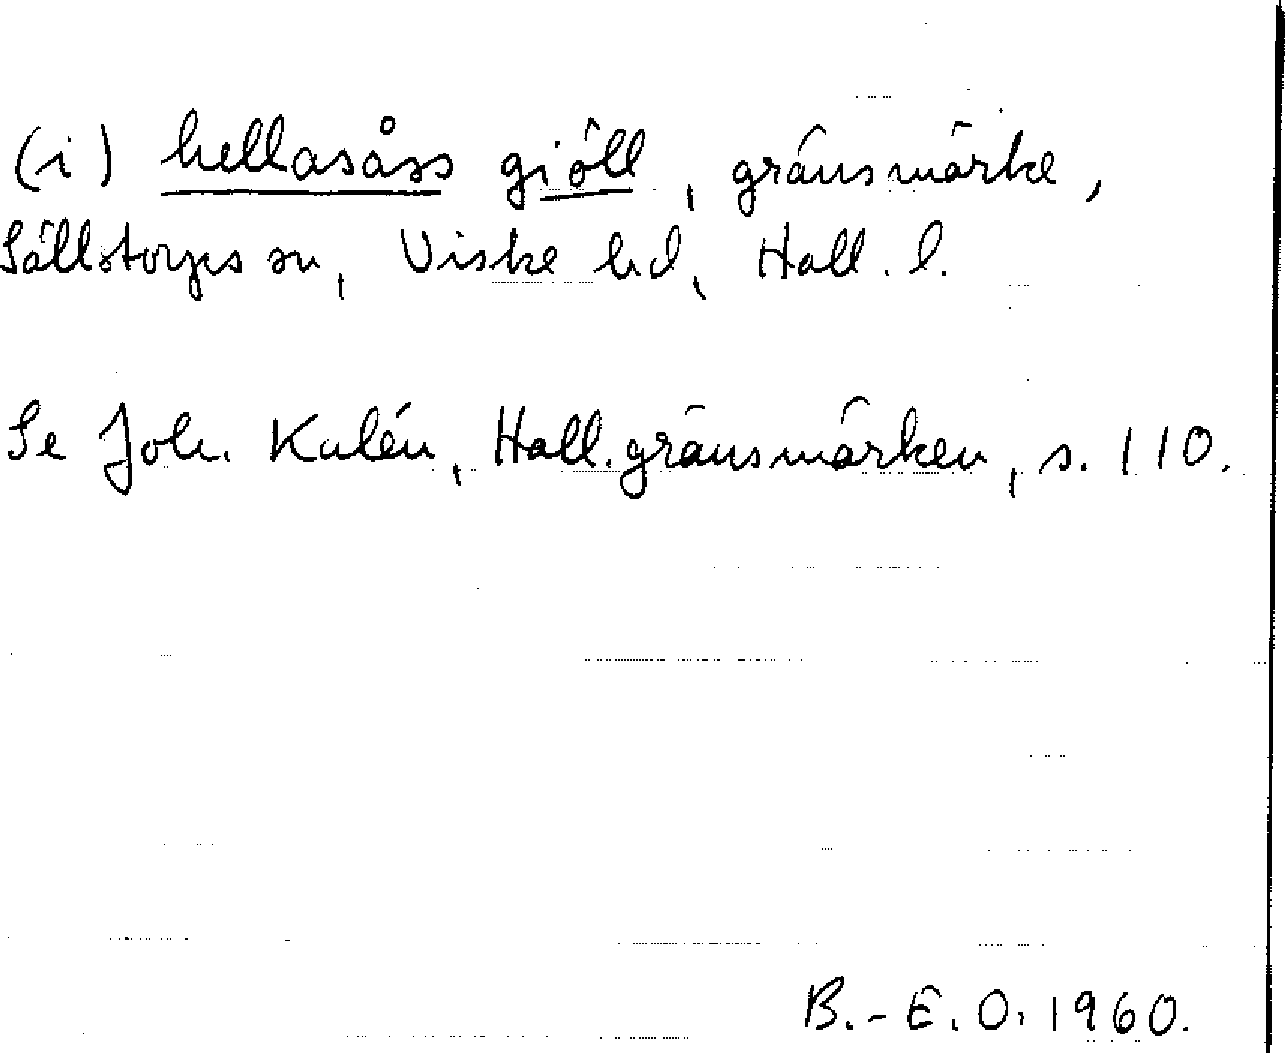 (i) hellasåss giöll, gränsmärke,
Sällstorps sn, Viske hd, Hall. l.
Se Joh. Kalén, Hall. gränsmärken, s. 110.
B.-E. O. 1960.